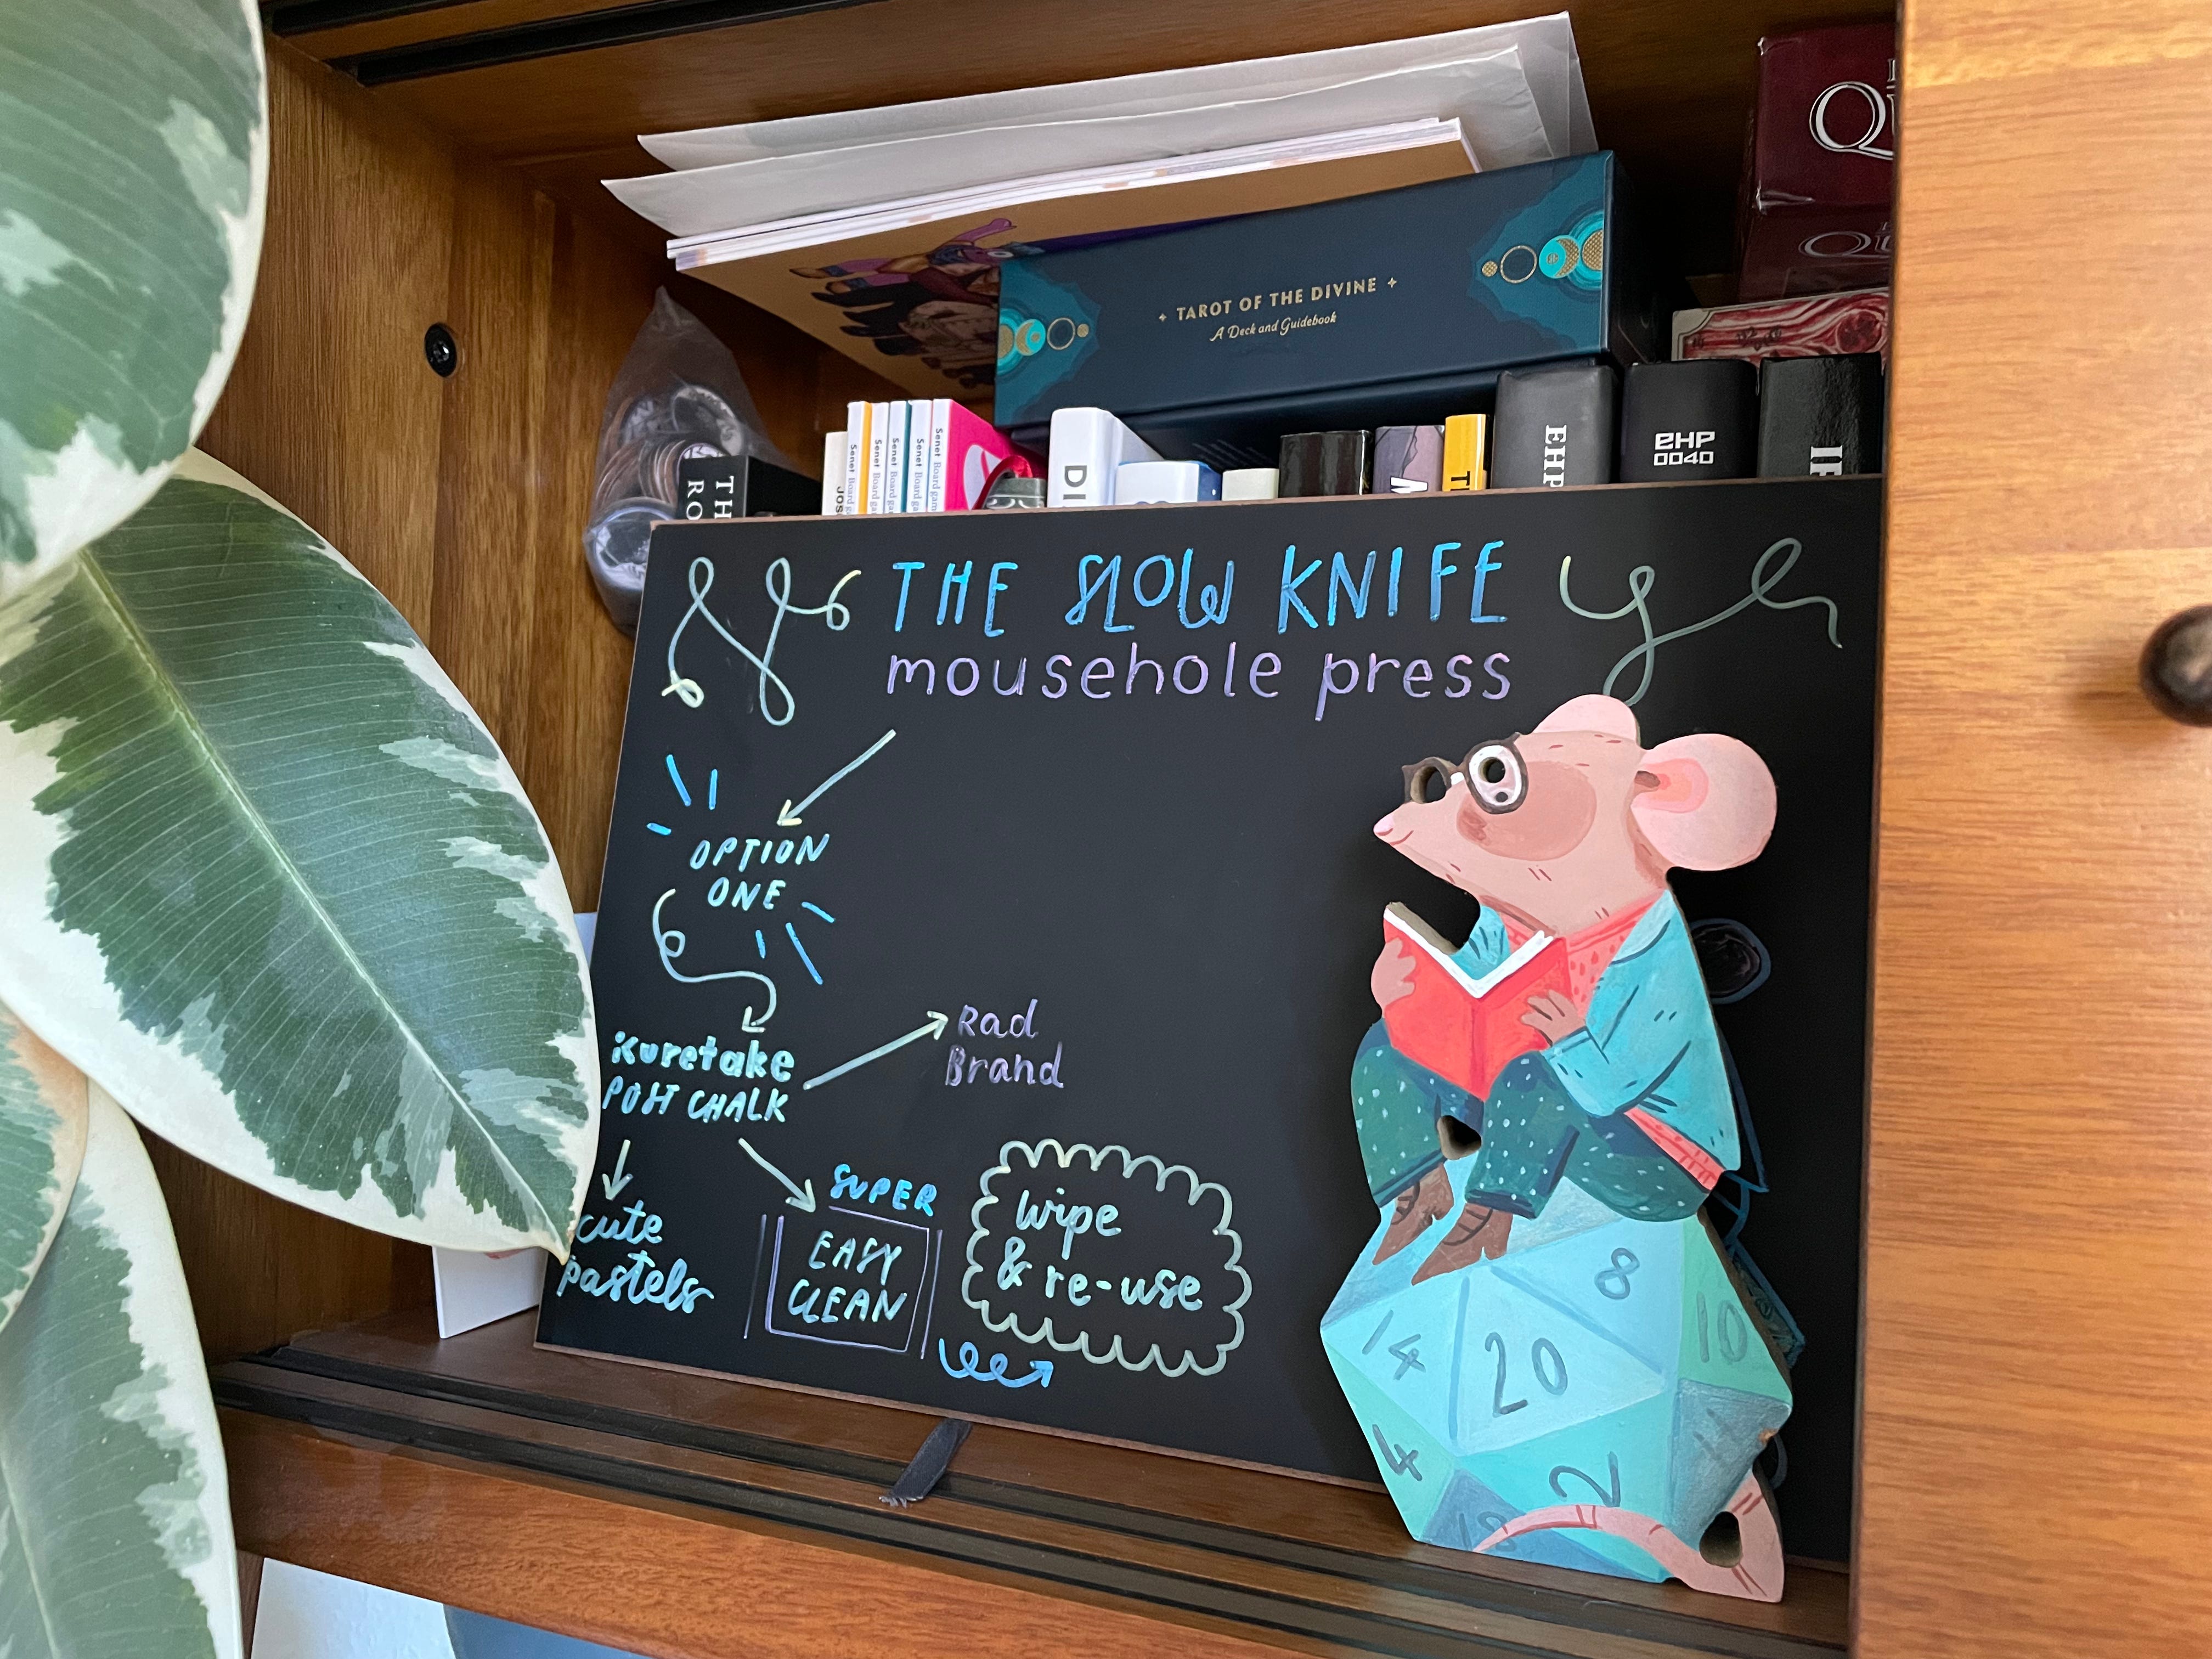 TAROT OF THE DIVINE
A Deck and Guidebook
Senet Board gam
Senet Board gam
Senet Board gam
Senet Board gam
EHP
EHP
0040
THE SLOW KNIFE
mousehole press
OPTION
ONE
Kuretake
POST CHALK
Rad
Brand
cute
pastels
SUPER
EASY
CLEAN
wipe
& re-use
8
10
14
20
4
2
18